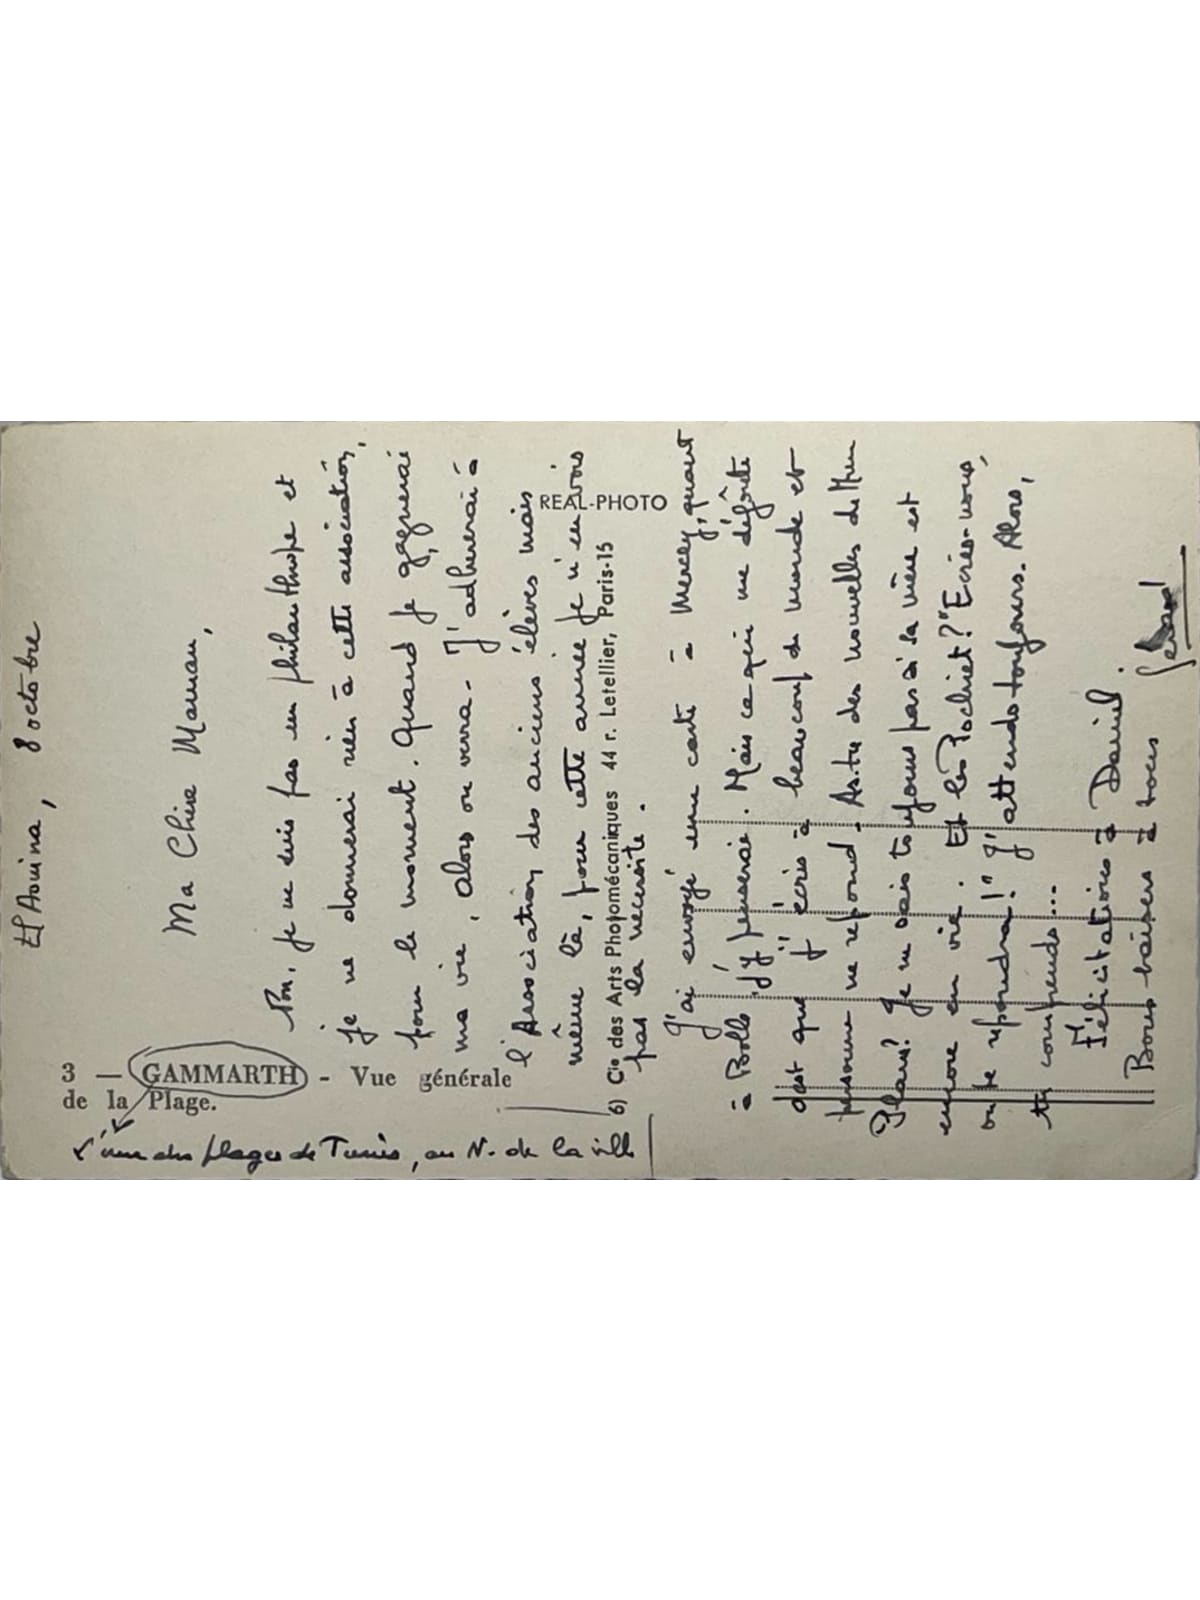 El Aouina, 8 octobre
Ma Chère Maman,
Non, je ne suis pas un philanthrope et
je ne donnerai rien à cette association,
pour le moment. Quand je gagnerai
ma vie, alors on verra - J'adhererai à
l'Association des anciens élèves mais
même là, pour cette année je n'en vois
pas la necessité.
J'ai envoyé une carte à Mercey, quant
à Bolle j'y penserai. Mais ce qui me dégoûte
c'est que j'écris à beaucoup de monde et
personne ne repond. As-tu des nouvelles de Mem
Plau? Je ne sais toujours pas si sa mère est
encore en vie. Et les Pochiet? "Ecris-nous,
on te repondra!" J'attends toujours. Alors,
tu comprends...
Félicitations à Daniel
Bons baisers à tous
Gérard
3 — GAMMARTH - Vue générale
de la Plage.
L'une des plages de Tunis, au N. de la ville
REAL-PHOTO
6) Cie des Arts Photomécaniques 44 r. Letellier, Paris-15